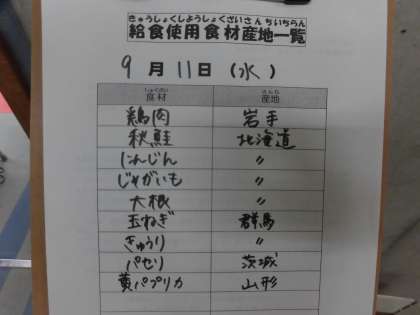 きゅうしょくしようしょくざいさんちいちらん
給食使用食材産地一覧
9月11日(水)
しょくざい さんち
食材 産地
鶏肉 岩手
秋鮭 北海道
にんじん 〃
じゃがいも 〃
大根 〃
玉ねぎ 群馬
きゅうり 〃
パセリ 茨城
黄パプリカ 山形